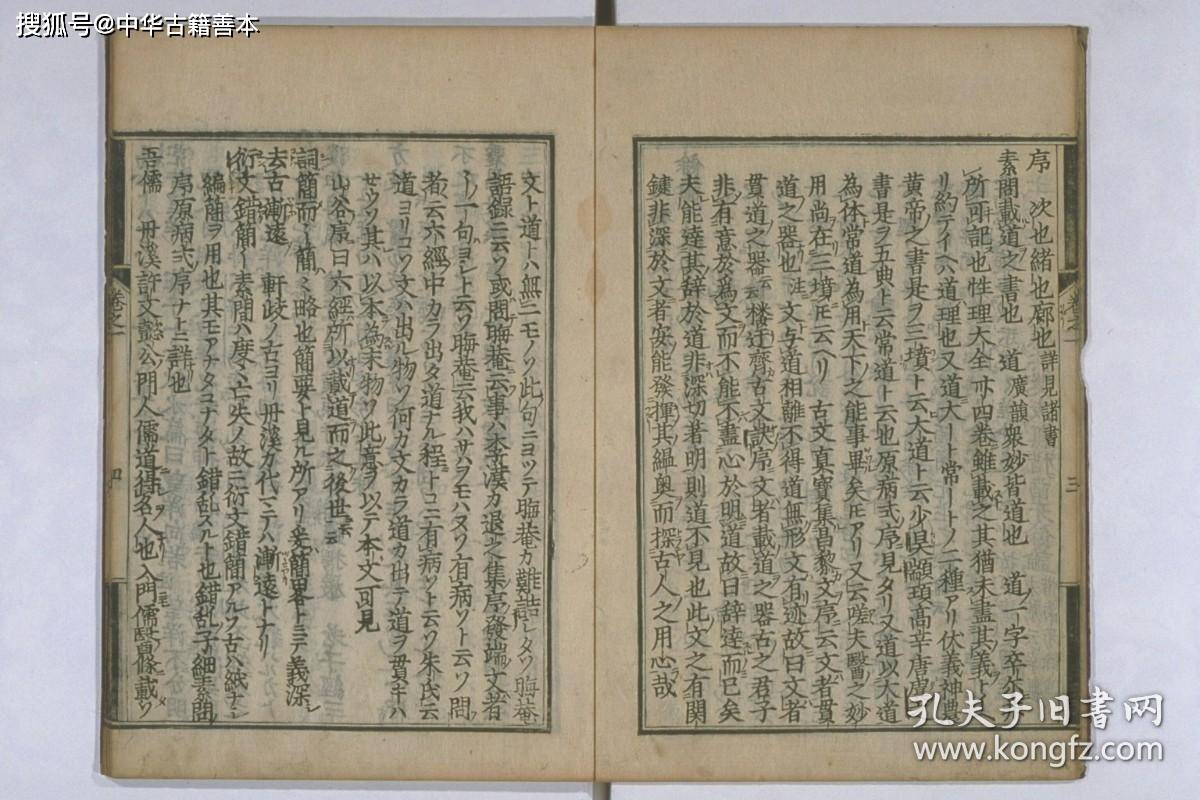 搜狐号@中华古籍善本
序 次也緒也廓也 詳見諸書
素問載道之書也 道 廣韻衆妙皆道也 道ノ一字卒ニ
所可部也性理大全卄四卷雖載之其猶未盡其義ト
リ約テイヘハ道理也又道大ート常ートノ二種アリ伏義神農
黄帝之書是ヲ三墳ト云大道ト云少昊顓頊高辛唐虞
書是ヲ五典ト云常道ト云也原病式序見タリ又道以大道
為体常道為用天下之能事畢矣トモアリ又云嗟夫醫之妙
用尚在三墳トモ云ヘリ 古文真寶集昌黎文序云文者貫
道之器也 注 文与道相離不得道無形文有迹故曰文者
貫道之器云 樓迂齋古文訣序文者載道之器古之君子
非有意於為文而不能不盡心於明道故曰辞達而已矣
夫能達其辞於道非深切者明則道不見也此文之有関
鍵非深於文者安能發揮其縕奥而探古人之用心哉
三
文ト道トハ無二モノソ此句ニヨツテ晦菴カ難詰シタソ晦菴
語録ニ云ソ或問晦菴云事ハ李漢カ退之集序發端文者
ー一句ヨシト云ソ晦菴云我ハサハヲモハヌソ有病ソト云ソ問
者云六經中カラ出タ道ナル程トコニ有病ソト云ソ朱氏云
道ヨリコソ文ハ出ル物ソ何カ文カラ道カ出テ道ヲ貫キハ
セウソ其ハ以本為末物ソ此意ヲ以テ本文可見
山谷序曰六經所以載道而之後世云
詞簡而ー簡ハ略也簡要ト見ル所アリ爰簡畧トミテ義深
去古漸遠 軒岐ノ古ヨリ丹溪カ代マテハ漸遠トナリ
衍文錯簡ー素問ハ度々亡失ノ故ニ衍文錯簡アルソ古ハ紙ナシ
編簡ヲ用也其モアナタコナタト錯乱スルト也錯乱子細素問
序原病式序ナトニ詳也
吾儒ー丹溪許文懿公ノ門人儒道得名人也入門儒醫ノ條載ソ
卷之一
四
孔夫子旧书网
www.kongfz.com